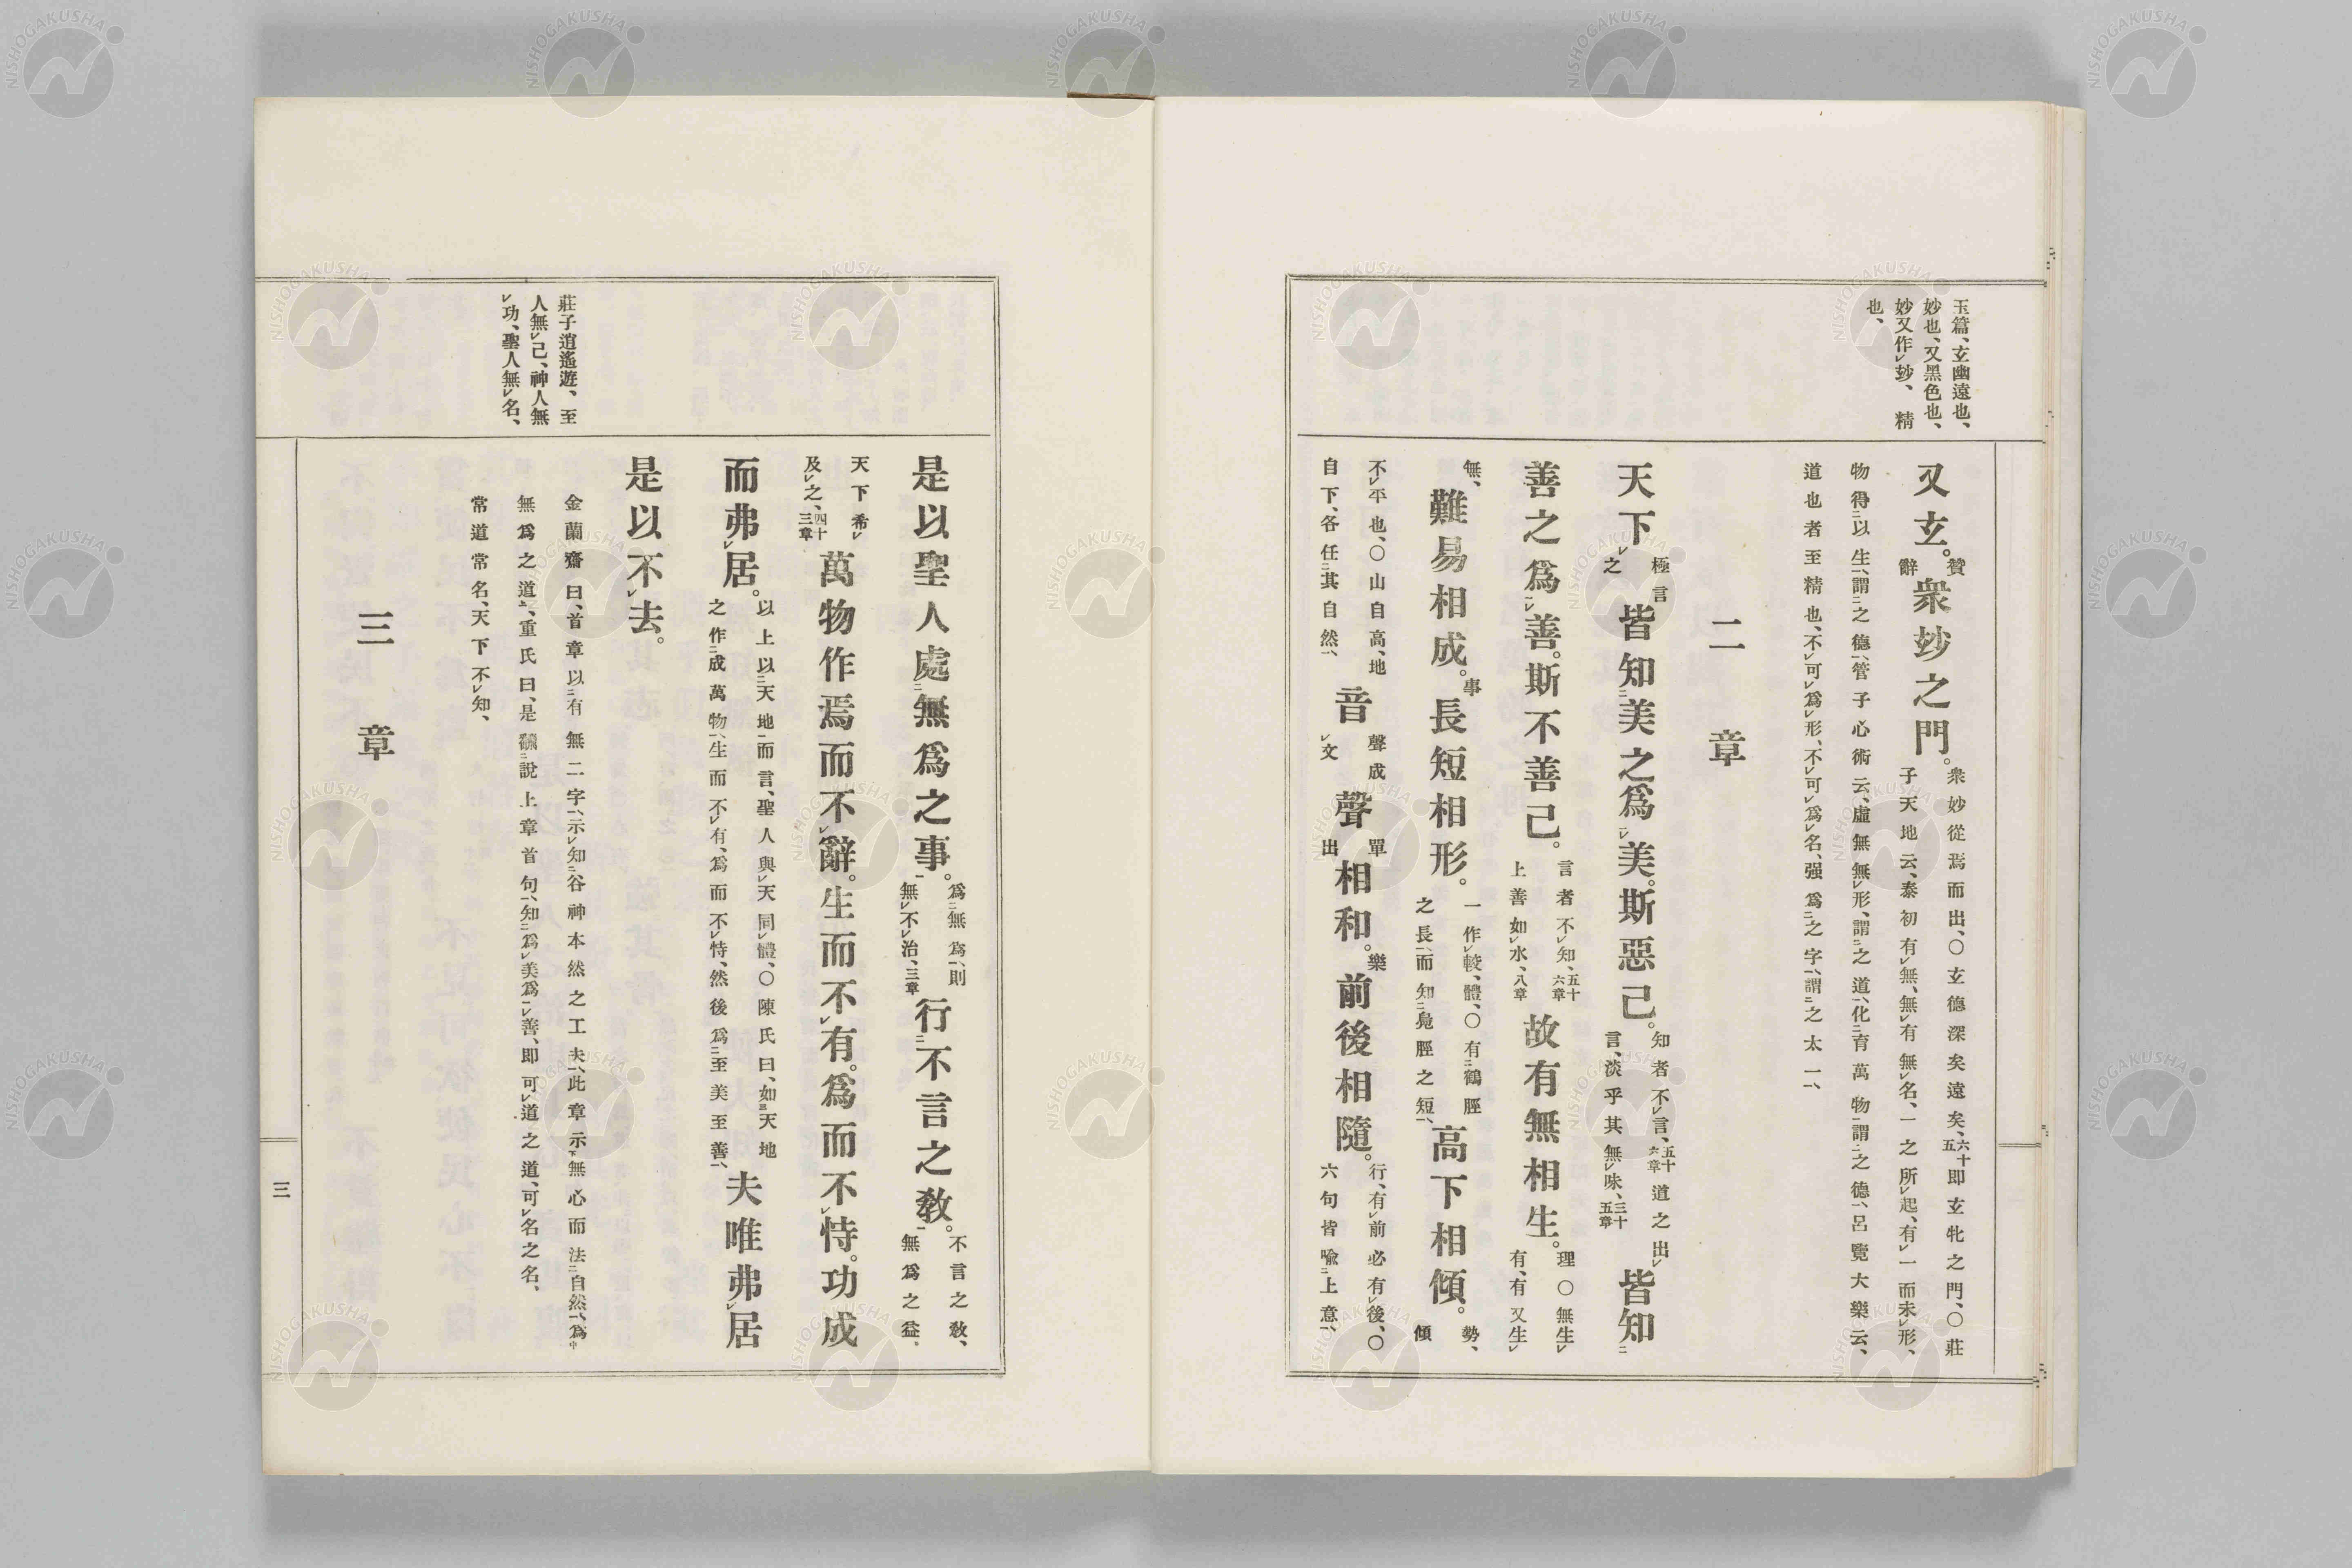 玉篇、玄幽遠也、
妙也、又黑色也、
妙又作㆑玅、精
也、
又玄。贊辭衆玅之門。衆妙從焉而出、〇玄德深矣遠矣、六十五即玄牝之門、〇莊子天地云、泰初有㆑無、無㆑有無㆑名、一之所㆑起、有㆑一而未㆑形、
物得㆓以生㆒、謂㆓之德㆒、管子心術云、虛無無㆑形、謂㆓之道㆒、化㆓育萬物㆒謂㆓之德㆒、呂覽大樂云、
道也者至精也、不㆑可㆑爲㆑形、不㆑可㆑爲㆑名、强爲㆓之字㆒、謂㆓之太一㆒、
二章
天下㆑極言之皆知㆓美之爲㆒㆑美。斯惡已。知者不㆑言、五十六章道之出㆑言、淡乎其無㆑味、三十五章皆知㆓
善之爲㆒㆑善。斯不善已。言者不㆑知、五十六章上善如㆑水、八章故有無相生。理〇無生㆑有、有又生㆑
無、難易相成。事長短相形。一作㆑較、體、〇有㆓鶴脛之長㆒、而知㆓鳧脛之短㆒、高下相傾。勢、傾
不㆑平也、〇山自高、地自下、各任㆓其自然㆒、音聲成㆑文聲單出相和。樂前後相隨。行、有㆑前必有㆑後、〇六句皆喩㆓上意㆒、
莊子逍遙遊、至
人無㆑己、神人無
㆑功、聖人無㆑名、
是以聖人處㆓無爲之事㆒。爲㆓無爲㆒、則無㆑不㆑治、三章行㆓不言之敎㆒。不言之敎、無爲之益、
天下希㆑及㆑之、四十三章萬物作焉而不㆑辭。生而不㆑有。爲而不㆑恃。功成
而弗㆑居。以上以㆓天地㆒而言、聖人與㆑天同㆑體、〇陳氏曰、如㆘天地之作㆓成萬物㆒、生而不㆑有、爲而不㆑恃、然後爲㆓至美至善㆒、夫唯弗㆑居
是以不㆑去。
金蘭齋曰、首章以㆓有無二字㆒、示㆑知㆓谷神本然之工夫㆒、此章示㆘無心而法㆓自然㆒、爲㆗
無爲之道㆖、重氏曰、是飜㆓說上章首句㆒、知㆓爲㆑美爲㆒㆑善、即可㆑道之道、可㆑名之名、
常道常名、天下不㆑知、
三章
三